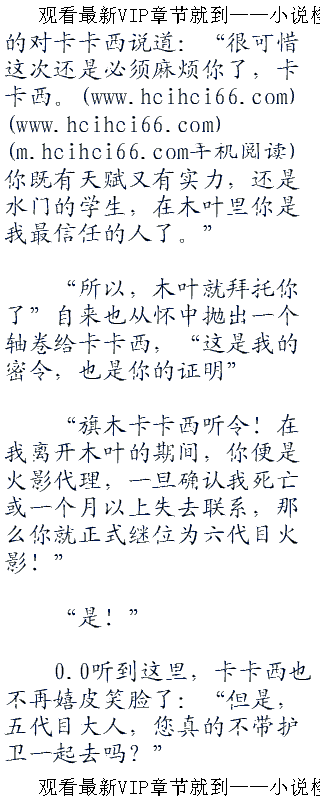 观看最新VIP章节就到——小说检
的对卡卡西说道：“很可惜
这次还是必须麻烦你了，卡
卡西。(www.hcihci66.com)
(www.hcihci66.com)
(m.hcihci66.com手机阅读)
你既有天赋又有实力，还是
水门的学生，在木叶里你是
我最信任的人了。”
“所以，木叶就拜托你
了”自来也从怀中抛出一个
轴卷给卡卡西，“这是我的
密令，也是你的证明”
“旗木卡卡西听令！在
我离开木叶的期间，你便是
火影代理，一旦确认我死亡
或一个月以上失去联系，那
么你就正式继位为六代目火
影！”
“是！”
0.0听到这里，卡卡西也
不再嬉皮笑脸了：“但是，
五代目大人，您真的不带护
卫一起去吗？”
观看最新VIP章节就到——小说检